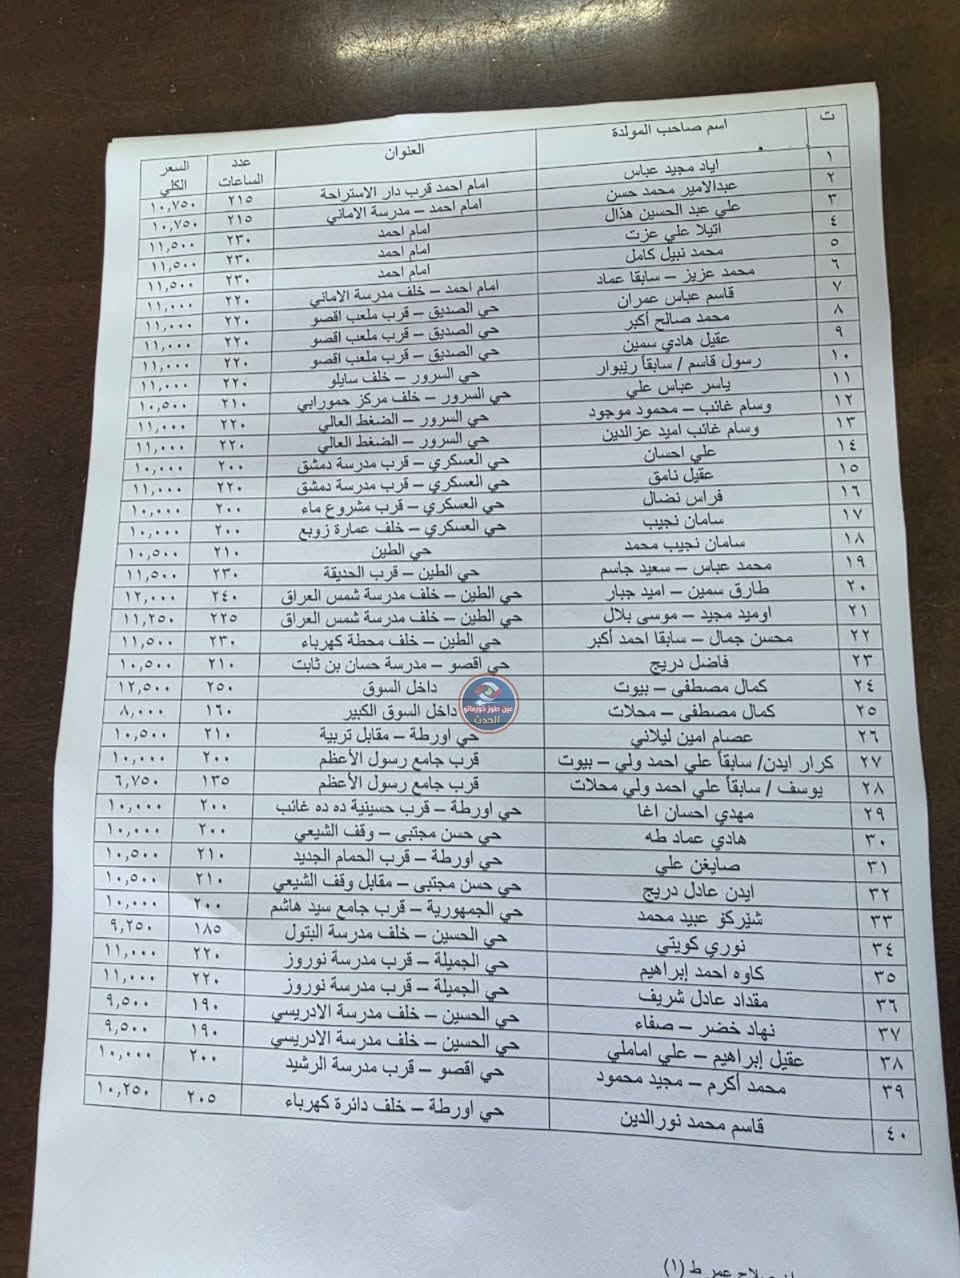 ت اسم صاحب المولدة العنوان عدد الساعات السعر الكلي
١ اياد مجيد عباس امام احمد قرب دار الاستراحة ٢١٥ ١٠,٧٥٠
٢ عبدالامير محمد حسن امام احمد – مدرسة الاماني ٢١٥ ١٠,٧٥٠
٣ علي عبد الحسين هذال امام احمد ٢٣٠ ١١,٥٠٠
٤ اتيلا علي عزت امام احمد ٢٣٠ ١١,٥٠٠
٥ محمد نبيل كامل امام احمد ٢٣٠ ١١,٥٠٠
٦ محمد عزيز – سابقا عماد امام احمد – خلف مدرسة الاماني ٢٢٠ ١١,٠٠٠
٧ قاسم عباس عمران حي الصديق – قرب ملعب اقصو ٢٢٠ ١١,٠٠٠
٨ محمد صالح أكبر حي الصديق – قرب ملعب اقصو ٢٢٠ ١١,٠٠٠
٩ عقيل هادي سمين حي الصديق – قرب ملعب اقصو ٢٢٠ ١١,٠٠٠
١٠ رسول قاسم / سابقأ ريبوار حي السرور – خلف سايلو ٢٢٠ ١١,٠٠٠
١١ ياسر عباس علي حي السرور – خلف مركز حمورابي ٢١٠ ١٠,٥٠٠
١٢ وسام غائب – محمود موجود حي السرور – الضغط العالي ٢٢٠ ١١,٠٠٠
١٣ وسام غائب اميد عزالدين حي السرور – الضغط العالي ٢٢٠ ١١,٠٠٠
١٤ علي احسان حي العسكري – قرب مدرسة دمشق ٢٠٠ ١٠,٠٠٠
١٥ عقيل نامق حي العسكري – قرب مدرسة دمشق ٢٢٠ ١١,٠٠٠
١٦ فراس نضال حي العسكري – قرب مشروع ماء ٢٠٠ ١٠,٠٠٠
١٧ سامان نجيب حي العسكري – خلف عمارة زوبع ٢٠٠ ١٠,٠٠٠
١٨ سامان نجيب محمد حي الطين ٢١٠ ١٠,٥٠٠
١٩ محمد عباس – سعيد جاسم حي الطين – قرب الحديقة ٢٣٠ ١١,٥٠٠
٢٠ طارق سمين – اميد جبار حي الطين – خلف مدرسة شمس العراق ٢٤٠ ١٢,٠٠٠
٢١ اوميد مجيد – موسى بلال حي الطين – خلف مدرسة شمس العراق ٢٢٥ ١١,٢٥٠
٢٢ محسن جمال – سابقا احمد أكبر حي الطين – خلف محطة كهرباء ٢٣٠ ١١,٥٠٠
٢٣ فاضل دريج حي اقصو – مدرسة حسان بن ثابت ٢١٠ ١٠,٥٠٠
٢٤ كمال مصطفى – بيوت داخل السوق ٢٥٠ ١٢,٥٠٠
٢٥ كمال مصطفى – محلات داخل السوق الكبير ١٦٠ ٨,٠٠٠
٢٦ عصام امين ليلاني حي اورطة – مقابل تربية ٢١٠ ١٠,٥٠٠
٢٧ كرار ايدن/ سابقأ علي احمد ولي – بيوت قرب جامع رسول الأعظم ٢٠٠ ١٠,٠٠٠
٢٨ يوسف / سابقأ علي احمد ولي محلات قرب جامع رسول الأعظم ١٣٥ ٦,٧٥٠
٢٩ مهدي احسان اغا حي اورطة – قرب حسينية ده ده غائب ٢٠٠ ١٠,٠٠٠
٣٠ هادي عماد طه حي حسن مجتبى – وقف الشيعي ٢٠٠ ١٠,٠٠٠
٣١ صايغن علي حي اورطة – قرب الحمام الجديد ٢١٠ ١٠,٥٠٠
٣٢ ايدن عادل دريج حي حسن مجتبى – مقابل وقف الشيعي ٢١٠ ١٠,٥٠٠
٣٣ شيركو عبيد محمد حي الجمهورية – قرب جامع سيد هاشم ٢٠٠ ١٠,٠٠٠
٣٤ نوري كويتي حي الحسين – خلف مدرسة البتول ١٨٥ ٩,٢٥٠
٣٥ كاوه احمد إبراهيم حي الجميلة – قرب مدرسة نوروز ٢٢٠ ١١,٠٠٠
٣٦ مقداد عادل شريف حي الجميلة – قرب مدرسة نوروز ٢٢٠ ١١,٠٠٠
٣٧ نهاد خضر – صفاء حي الحسين – خلف مدرسة الادريسي ١٩٠ ٩,٥٠٠
٣٨ عقيل إبراهيم – علي اماملي حي الحسين – خلف مدرسة الادريسي ١٩٠ ٩,٥٠٠
٣٩ محمد أكرم – مجيد محمود حي اقصو – قرب مدرسة الرشيد ٢٠٠ ١٠,٠٠٠
٤٠ قاسم محمد نورالدين حي اورطة – خلف دائرة كهرباء ٢٠٥ ١٠,٢٥٠
عين طوز خورماتو
الحدث
عمر ط (١)